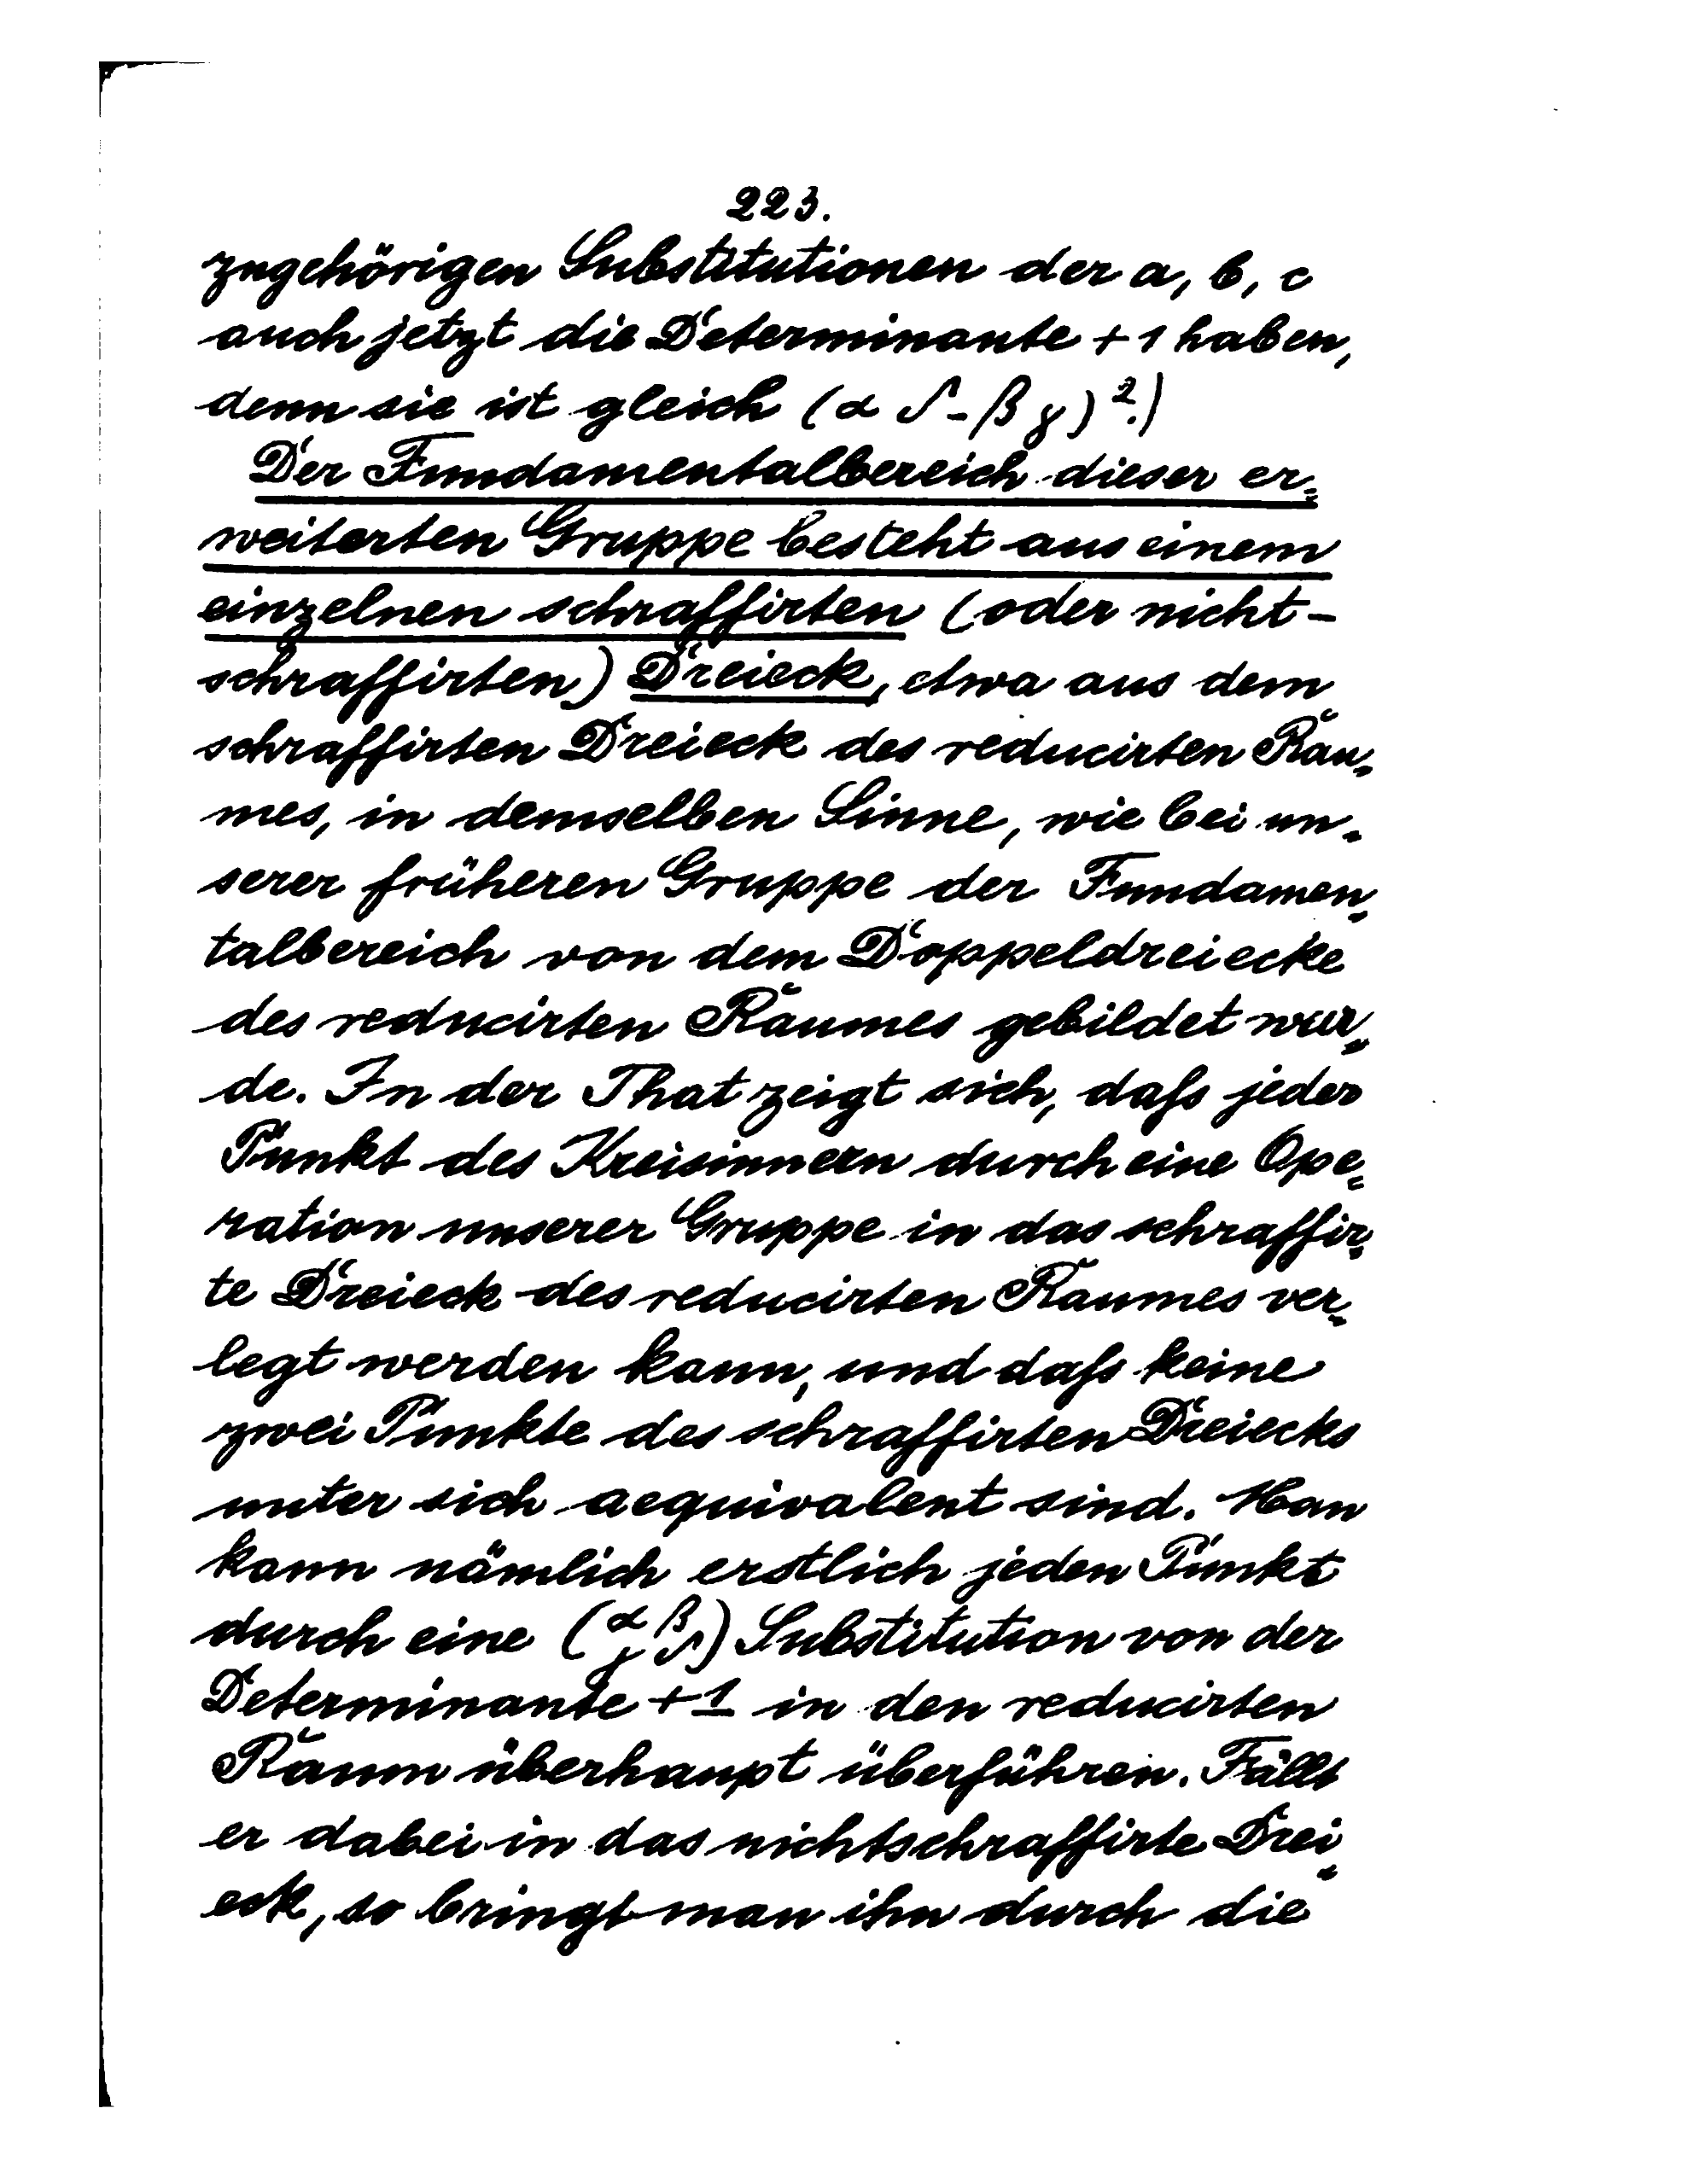 223.
zugehörigen Substitutionen der a, b, c
auch jetzt die Determinante +1 haben,
denn sie ist gleich (α δ - β γ)².)
Der Fundamentalbereich dieser er=
weiterten Gruppe besteht aus einem
einzelnen schraffirten (oder nicht-
schraffirten) Dreieck, etwa aus dem
schraffirten Dreieck des reducirten Rau=
mes, in demselben Sinne, wie bei un=
serer früheren Gruppe der Fundamen=
talbereich von dem Doppeldreiecke
des reducirten Raumes gebildet wur=
de. In der That zeigt sich, daſs jeder
Punkt des Kreisinnern durch eine Ope=
ration unserer Gruppe in das schraffir=
te Dreieck des reducirten Raumes ver=
legt werden kann, und daſs keine
zwei Punkte des schraffirten Dreiecks
unter sich aequivalent sind. Man
kann nämlich erstlich jeden Punkt
durch eine (α β γ δ) Substitution von der
Determinante +1 in den reducirten
Raum überhaupt überführen. Fällt
er dabei in das nichtschraffirte Drei=
eck, so bringt man ihn durch die